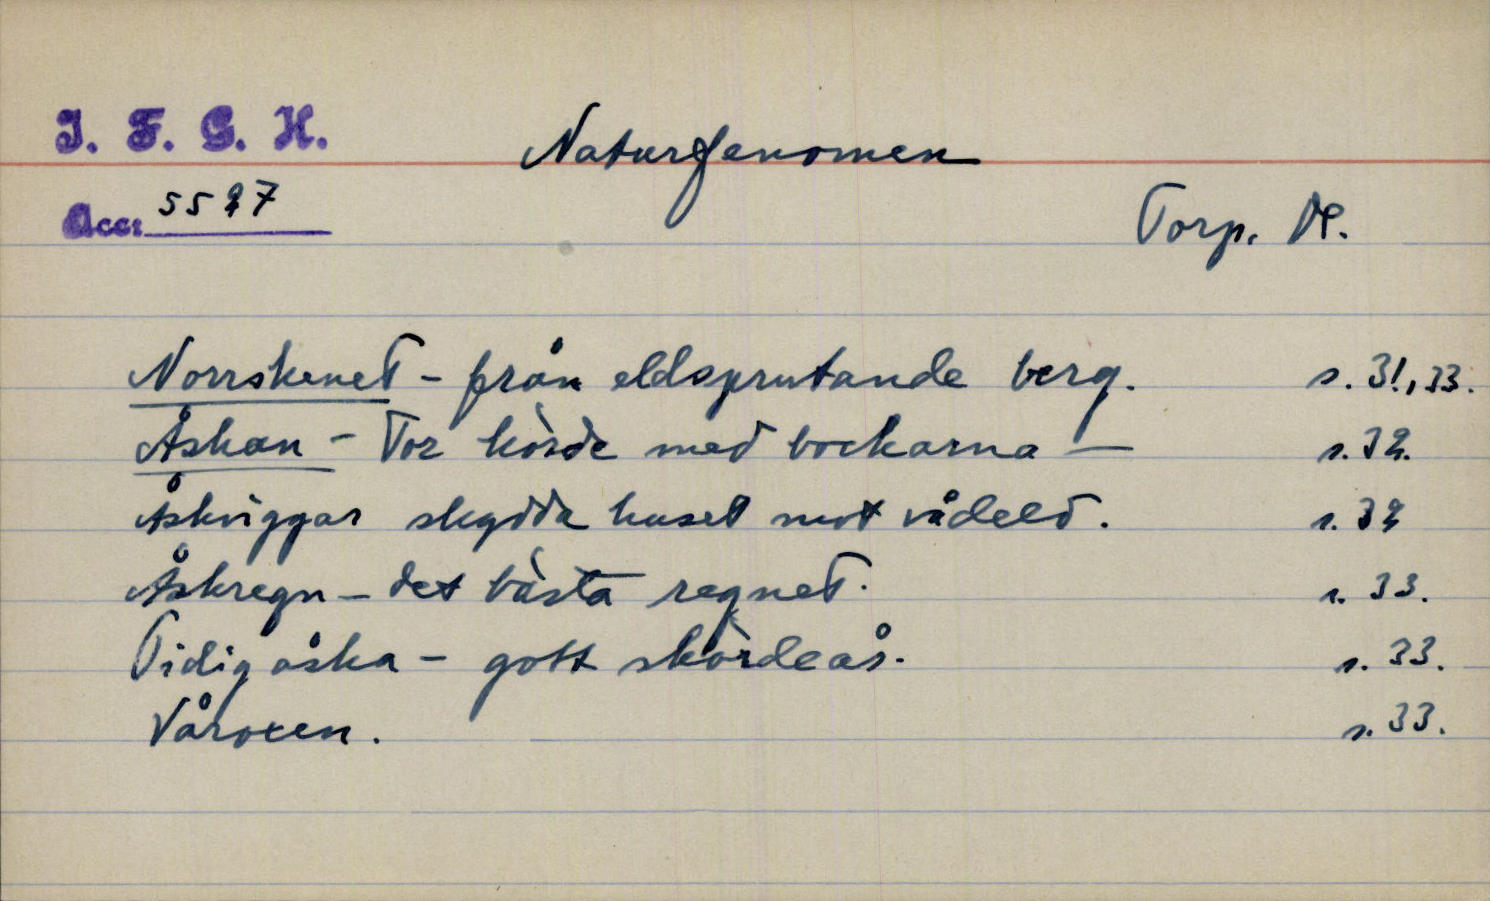 I. F. G. H.
Naturfenomen
Acc: 5527
Torp. Dl.
Norrskenet - från eldsprutande berg. s. 31, 33.
Åskan - Tor körde med bockarna - s. 32.
Åskviggar skydda huset mot vådeld. s. 32
Åskregn - det bästa regnet. s. 33.
Tidig åska - gott skördeår. s. 33.
Våroxen. s. 33.